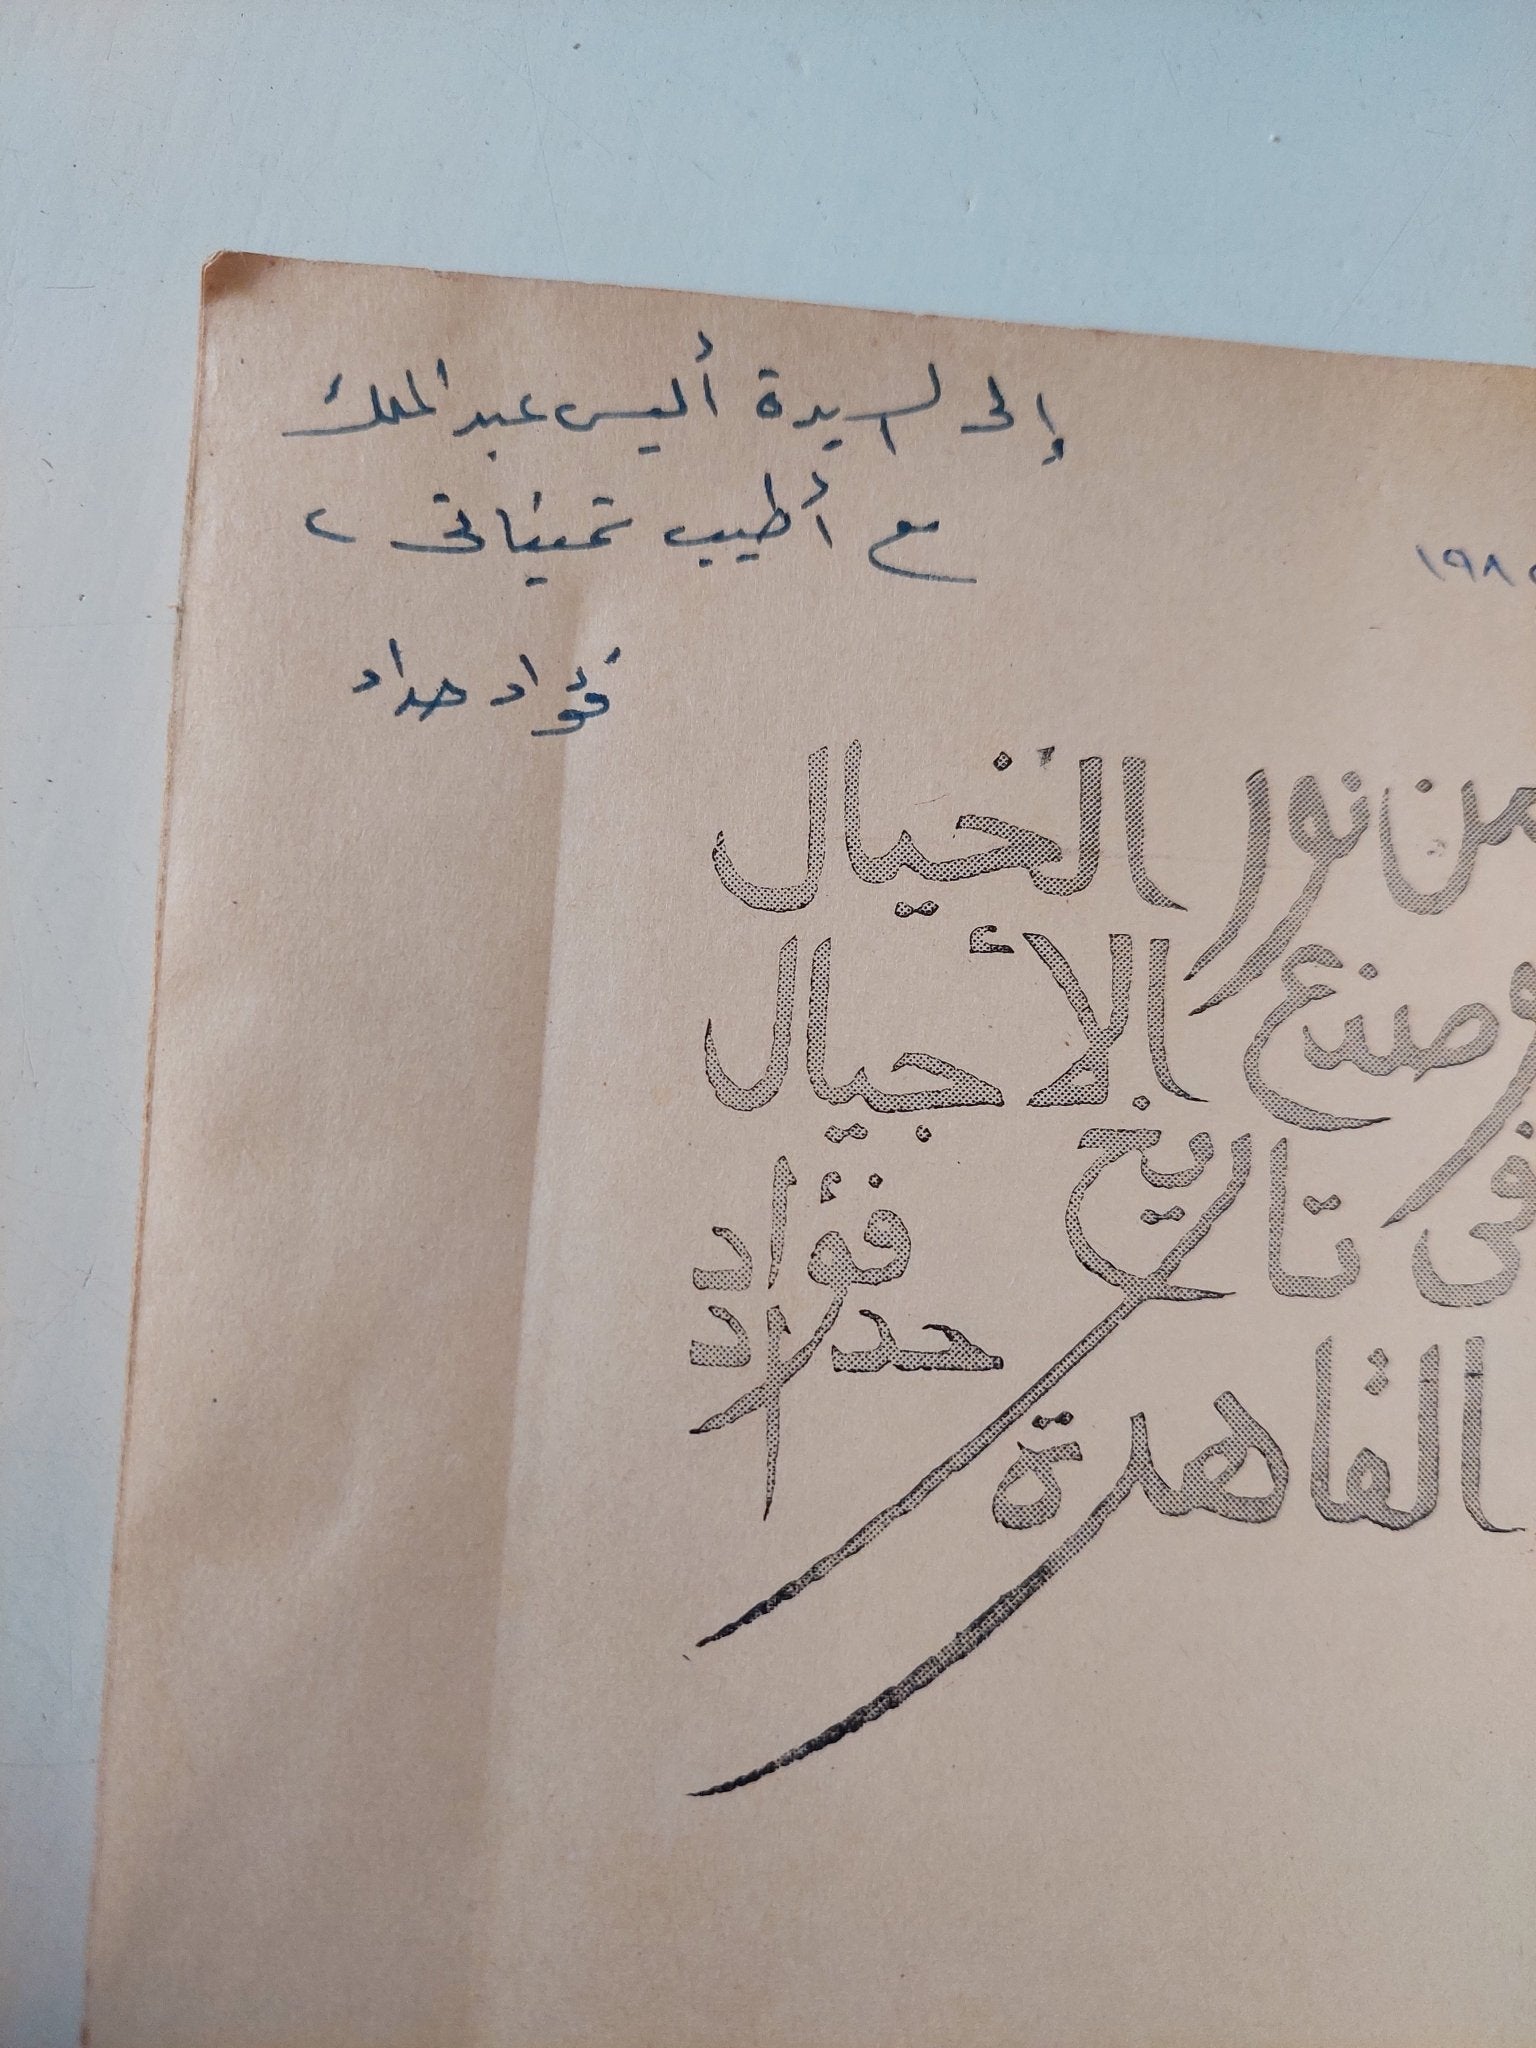 إلى السيدة أليس عبد الملك
مع أطيب تمنياتى ،
فؤاد حداد
١٩٨
من نور الخيال
وصنع الأجيال
فى تاريخ
القاهرة
فؤاد
حداد